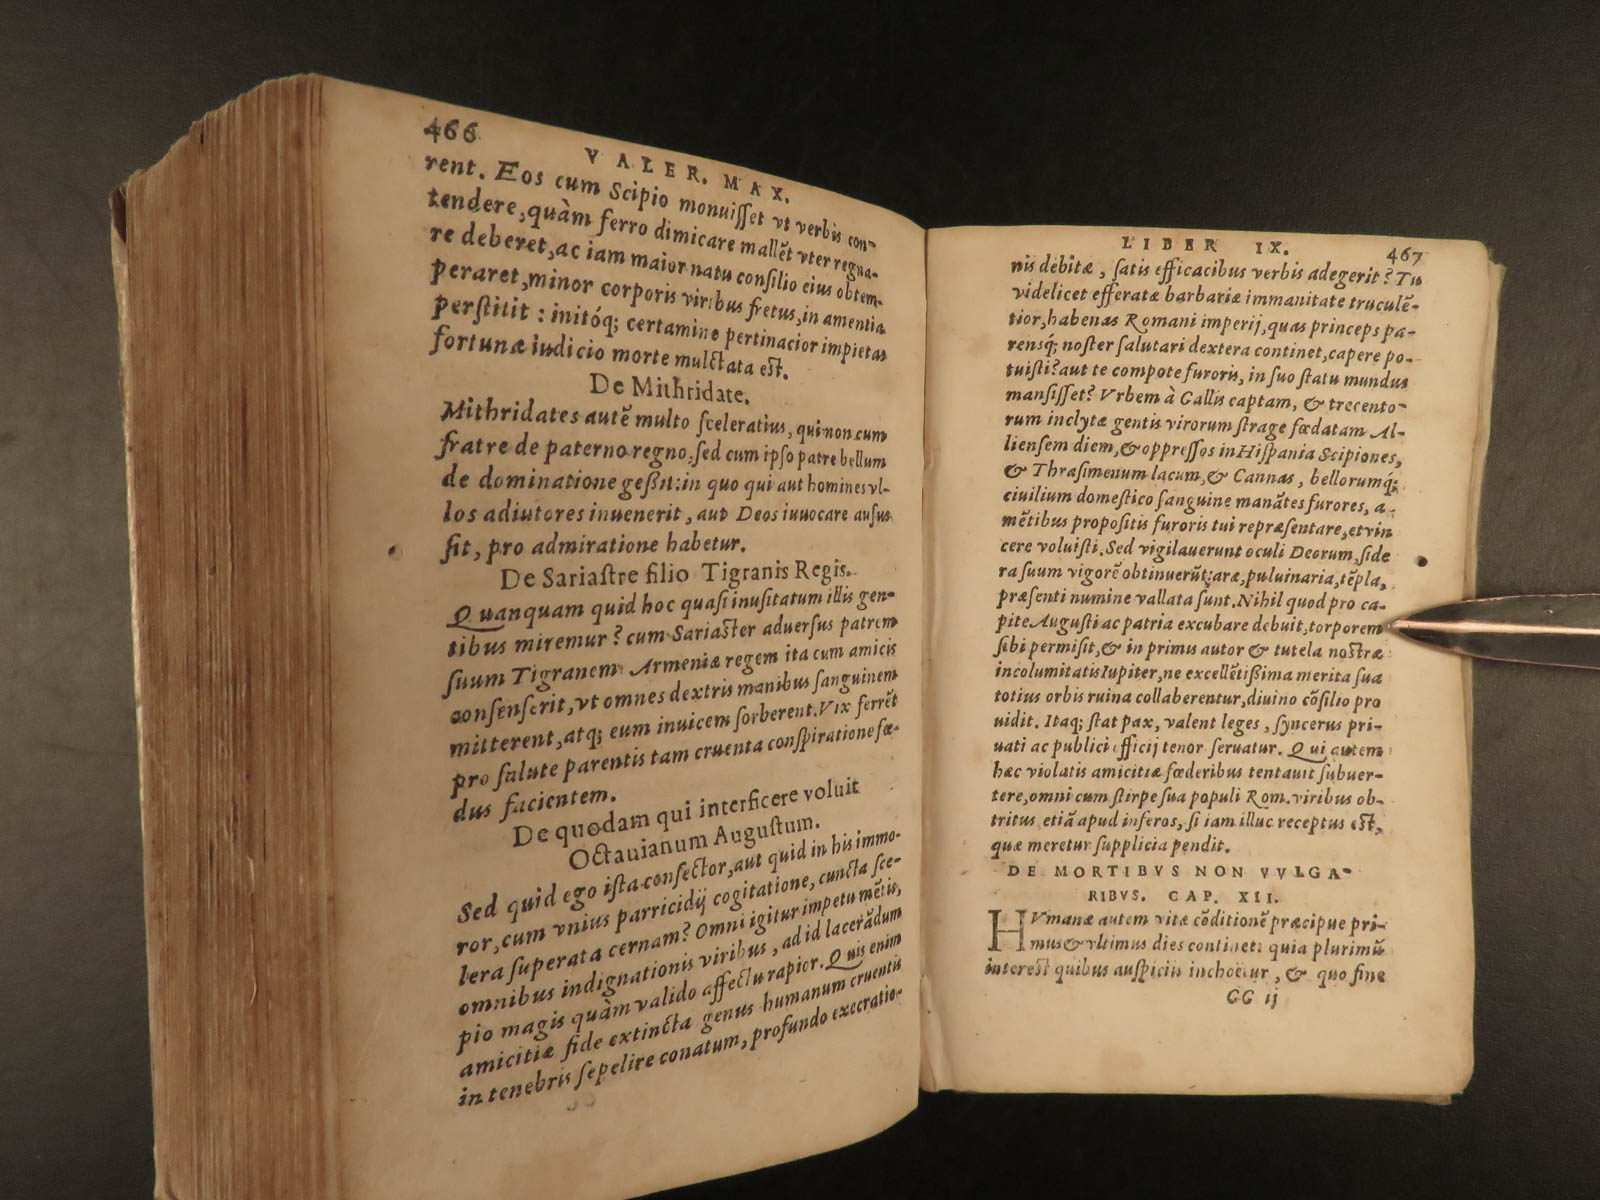 466
VALER. MAX.
rent. Eos cum Scipio monuisset vt verbis con-
tendere, quàm ferro dimicare mallēt vter regna-
re deberet, ac iam maior natu consilio eius obtem-
peraret, minor corporis viribus fretus, in amentia
perstitit : initóq; certamine pertinacior impietas
fortunæ iudicio morte mulctata est.
De Mithridate.
Mithridates autē multo sceleratius, qui non cum
fratre de paterno regno, sed cum ipso patre bellum
de dominatione geßit: in quo qui aut homines vl-
los adiutores inuenerit, aut Deos inuocare ausus
sit, pro admiratione habetur.
De Sariastre filio Tigranis Regis.
Quanquam quid hoc quasi inusitatum illis gen-
tibus miremur? cum Sariaster aduersus patrem
suum Tigranem Armeniæ regem ita cum amicis
consenserit, vt omnes dextris manibus sanguinem
mitterent, atq; eum inuicem sorberent. Vix ferrēt
pro salute parentis tam cruenta conspiratione fœ-
dus facientem.
De quodam qui interficere voluit
Octauianum Augustum.
Sed quid ego ista consector, aut quid in his immo-
ror, cum vnius parricidij cogitatione, cuncta sce-
lera superata cernam? Omni igitur impetu mētis,
omnibus indignationis viribus, ad id lacerādum
pio magis quàm valido affectu rapior. Quis enim
amicitiæ fide extincta genus humanum cruentis
in tenebris sepelire conatum, profundo execratio-
LIBER IX.
467
nis debitæ, satis efficacibus verbis adegerit? Tu
videlicet efferatæ barbariæ immanitate truculē-
tior, habenas Romani imperij, quas princeps pa-
rensq; noster salutari dextera continet, capere po-
tuisti? aut te compote furoris, in suo statu mundus
mansisset? Vrbem à Gallis captam, & trecento-
rum inclytæ gentis virorum strage fœdatam Al-
liensem diem, & oppressos in Hispania Scipiones,
& Thrasimenum lacum, & Cannas, bellorumq́;
ciuilium domestico sanguine manātes furores, a-
mētibus propositis furoris tui repræsentare, et vin
cere voluisti. Sed vigilauerunt oculi Deorum, side
ra suum vigorē obtinuerūt: aræ, puluinaria, tēpla,
præsenti numine vallata sunt. Nihil quod pro ca-
pite Augusti ac patria excubare debuit, torporem
sibi permisit, & in primus autor & tutela nostræ
incolumitatis Iupiter, ne excellētißima merita sua
totius orbis ruina collaberentur, diuino cōsilio pro
uidit. Itaq; stat pax, valent leges, syncerus pri-
uati ac publici officij tenor seruatur. Qui autem
hæc violatis amicitiæ fœderibus tentauit subuer-
tere, omni cum stirpe sua populi Rom. viribus ob-
tritus, etiā apud inferos, si iam illuc receptus est,
quæ meretur supplicia pendit.
DE MORTIBVS NON VVLGA-
RIBVS. CAP. XII.
HVmanæ autem vitæ cōditionē præcipue pri-
mus & vltimus dies continet: quia plurimū
interest quibus auspiciis inchoëtur, & quo fine
GG ij